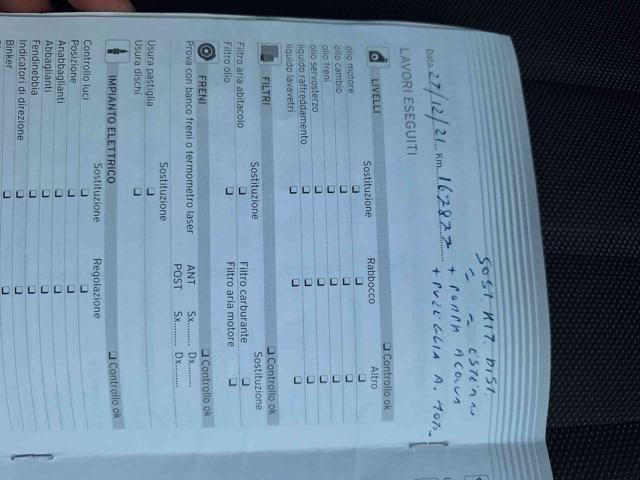 SOST. KIT. DIST.
" " ESTERNA
Data 27/12/21 Km 167877 + POMPA ACQUA
+ PULEGGIA A. MOTO
LAVORI ESEGUITI
LIVELLI ❑ Controllo ok
Sostituzione Rabbocco Altro
olio motore ❑ ❑ ❑
olio cambio ❑ ❑ ❑
olio freni ❑ ❑ ❑
olio servosterzo ❑ ❑ ❑
liquido raffreddamento ❑ ❑ ❑
liquido lavavetri ❑ ❑ ❑
FILTRI ❑ Controllo ok
Sostituzione Sostituzione
Filtro aria abitacolo ❑ Filtro carburante ❑
Filtro olio ❑ Filtro aria motore ❑
FRENI ❑ Controllo ok
Prova con banco freni o termometro laser ANT Sx......... Dx.........
POST Sx......... Dx.........
Sostituzione
Usura pastiglia ❑
Usura dischi ❑
IMPIANTO ELETTRICO ❑ Controllo ok
Sostituzione Regolazione
Controllo luci ❑ ❑
Posizione ❑ ❑
Anabbaglianti ❑
Abbaglianti ❑
Fendinebbia ❑
Indicatori di direzione ❑
Binker ❑ ❑